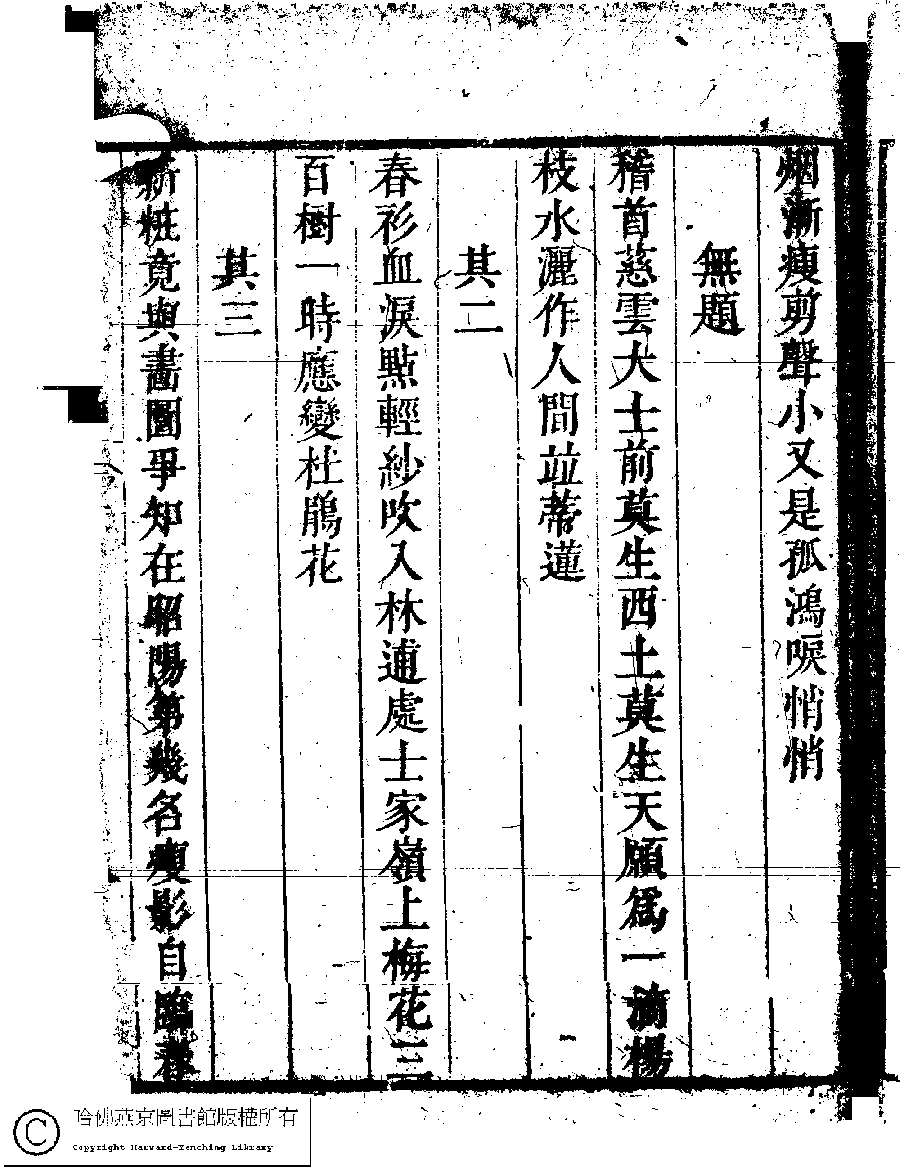 烟漸瘦剪聲小又是孤鴻唳悄悄
無題
稽首慈雲大士前莫生西土莫生天願為一滴楊
枝水灑作人間竝蒂蓮
其二
春衫血淚點輕紗吹入林逋處士家嶺上梅花三
百樹一時應變杜鵑花
其三
新粧竟與畵圖爭知在昭陽第幾名瘦影自臨春
哈佛燕京圖書館版權所有
Copyright Harvard-Yenching Library